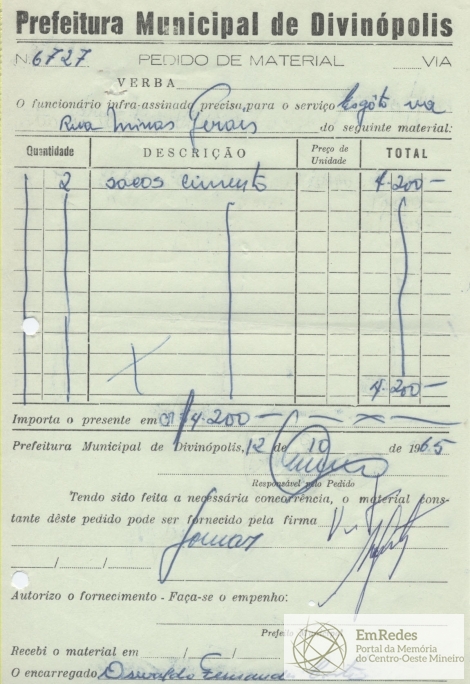 Prefeitura Municipal de Divinópolis
N. 6727 PEDIDO DE MATERIAL VIA
VERBA
O funcionário infra-assinado precisa, para o serviço Esgôto na
Rua Minas Gerais do seguinte material:
Quantidade DESCRIÇÃO Preço de Unidade TOTAL
2 sacos cimento 4.200—
4.200—
Importa o presente em Cr$ 4.200—
Prefeitura Municipal de Divinópolis, 12 de 10 de 1965
Responsável pelo Pedido
Tendo sido feita a necessária concorrência, o material cons-
tante dêste pedido pode ser fornecido pela firma
/ /
Autorizo o fornecimento - Faça-se o empenho:
Prefeito Municipal
Recebi o material em / /
O encarregado Oswaldo
EmRedes
Portal da Memória
do Centro-Oeste Mineiro